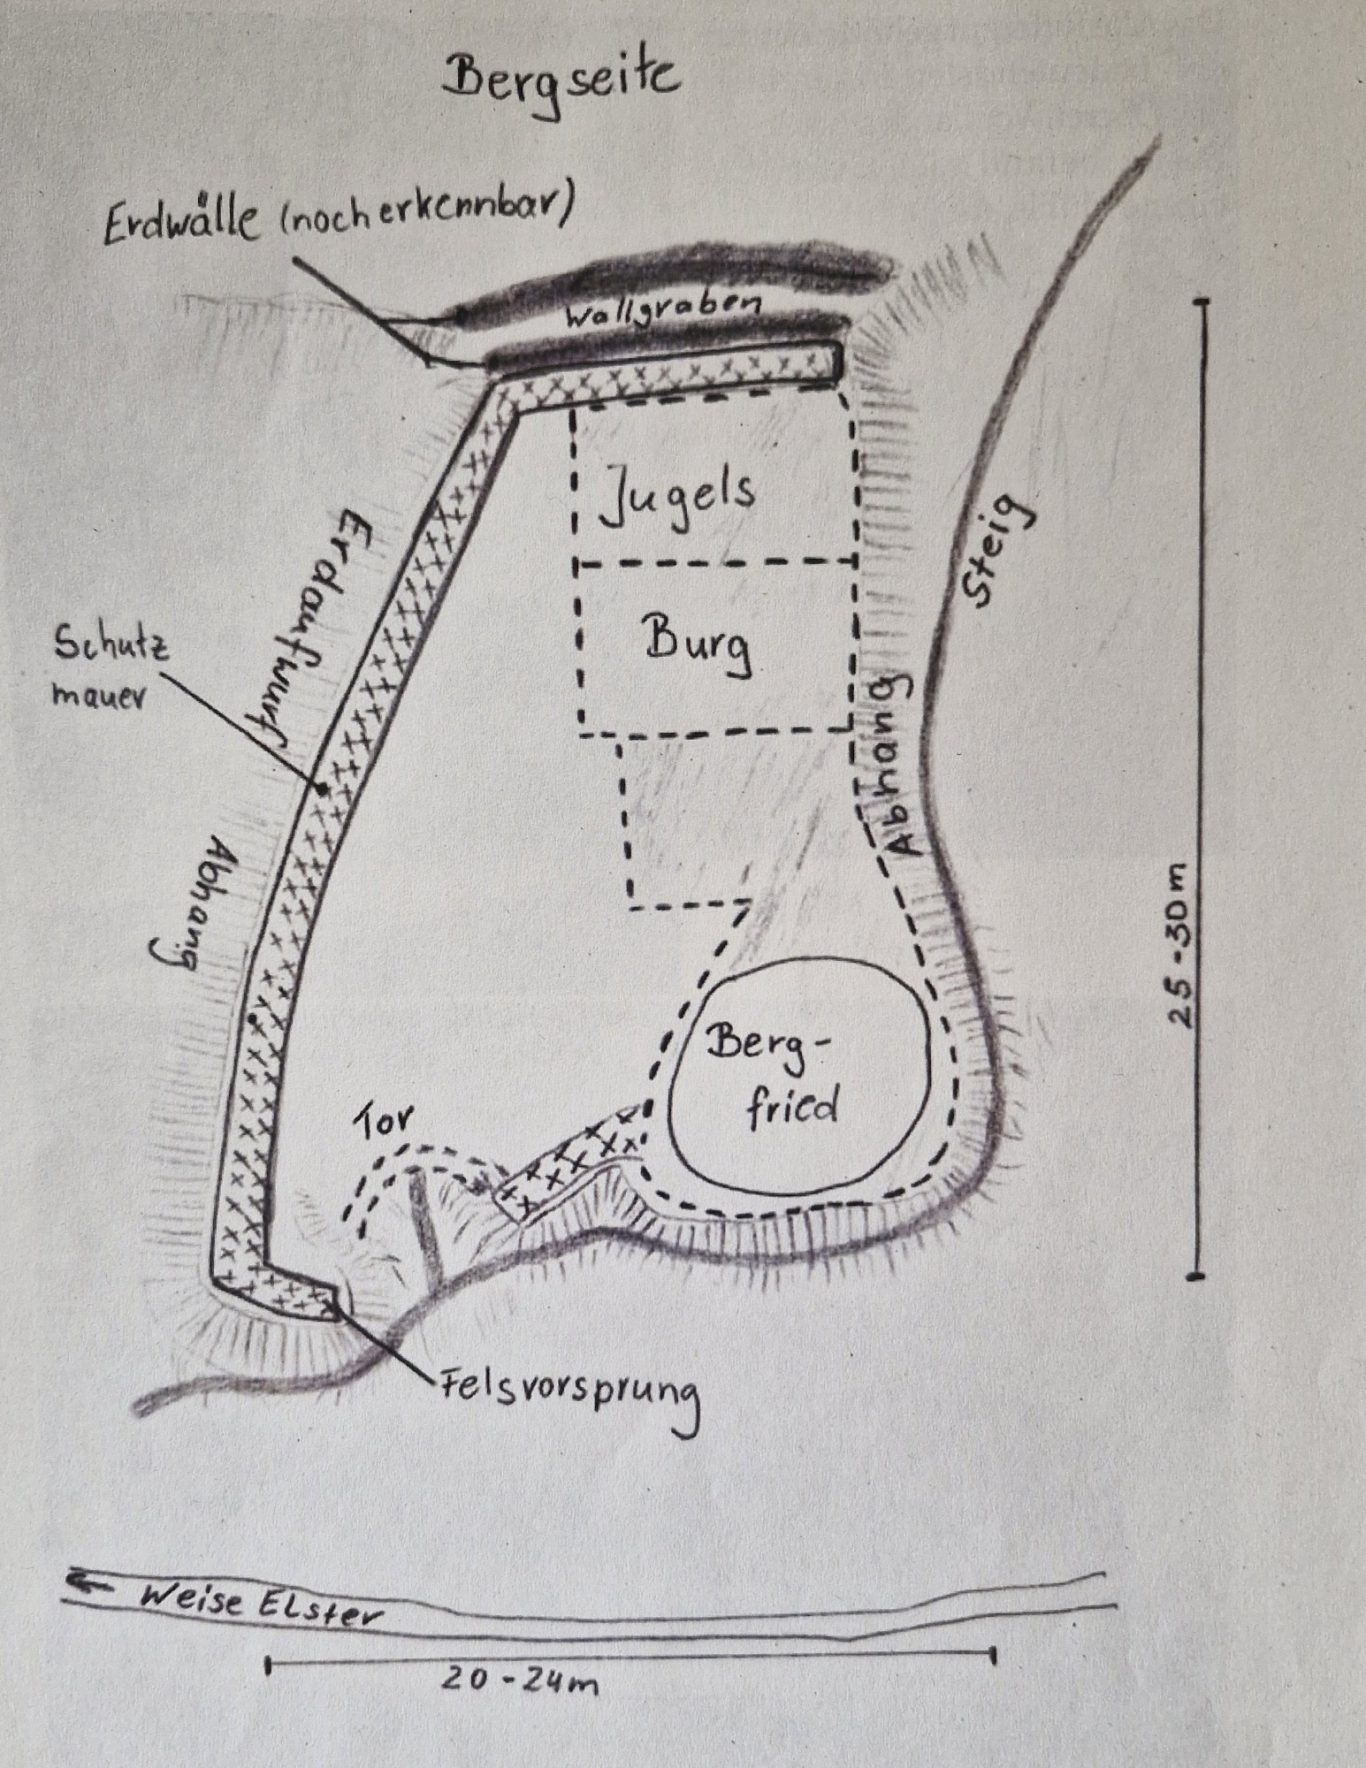 Bergseite
Erdwälle (noch erkennbar)
Wallgraben
Jugels
Steig
Erdaufwurf
Schutz
mauer
Burg
Abhang
Abhang
25-30m
Berg-
fried
Tor
Felsvorsprung
Weise Elster
20-24m